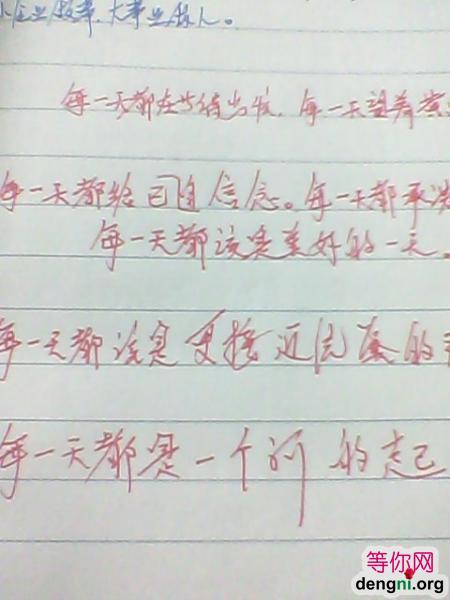 小企业做事,大事业做人。
每一天都在等待出发,每一天望着
每一天都给己自信念。每一天都承
每一天都该是美好的一天。
每一天都该是更接近 的
每一天都是一个 的起
等你网
dengni.org